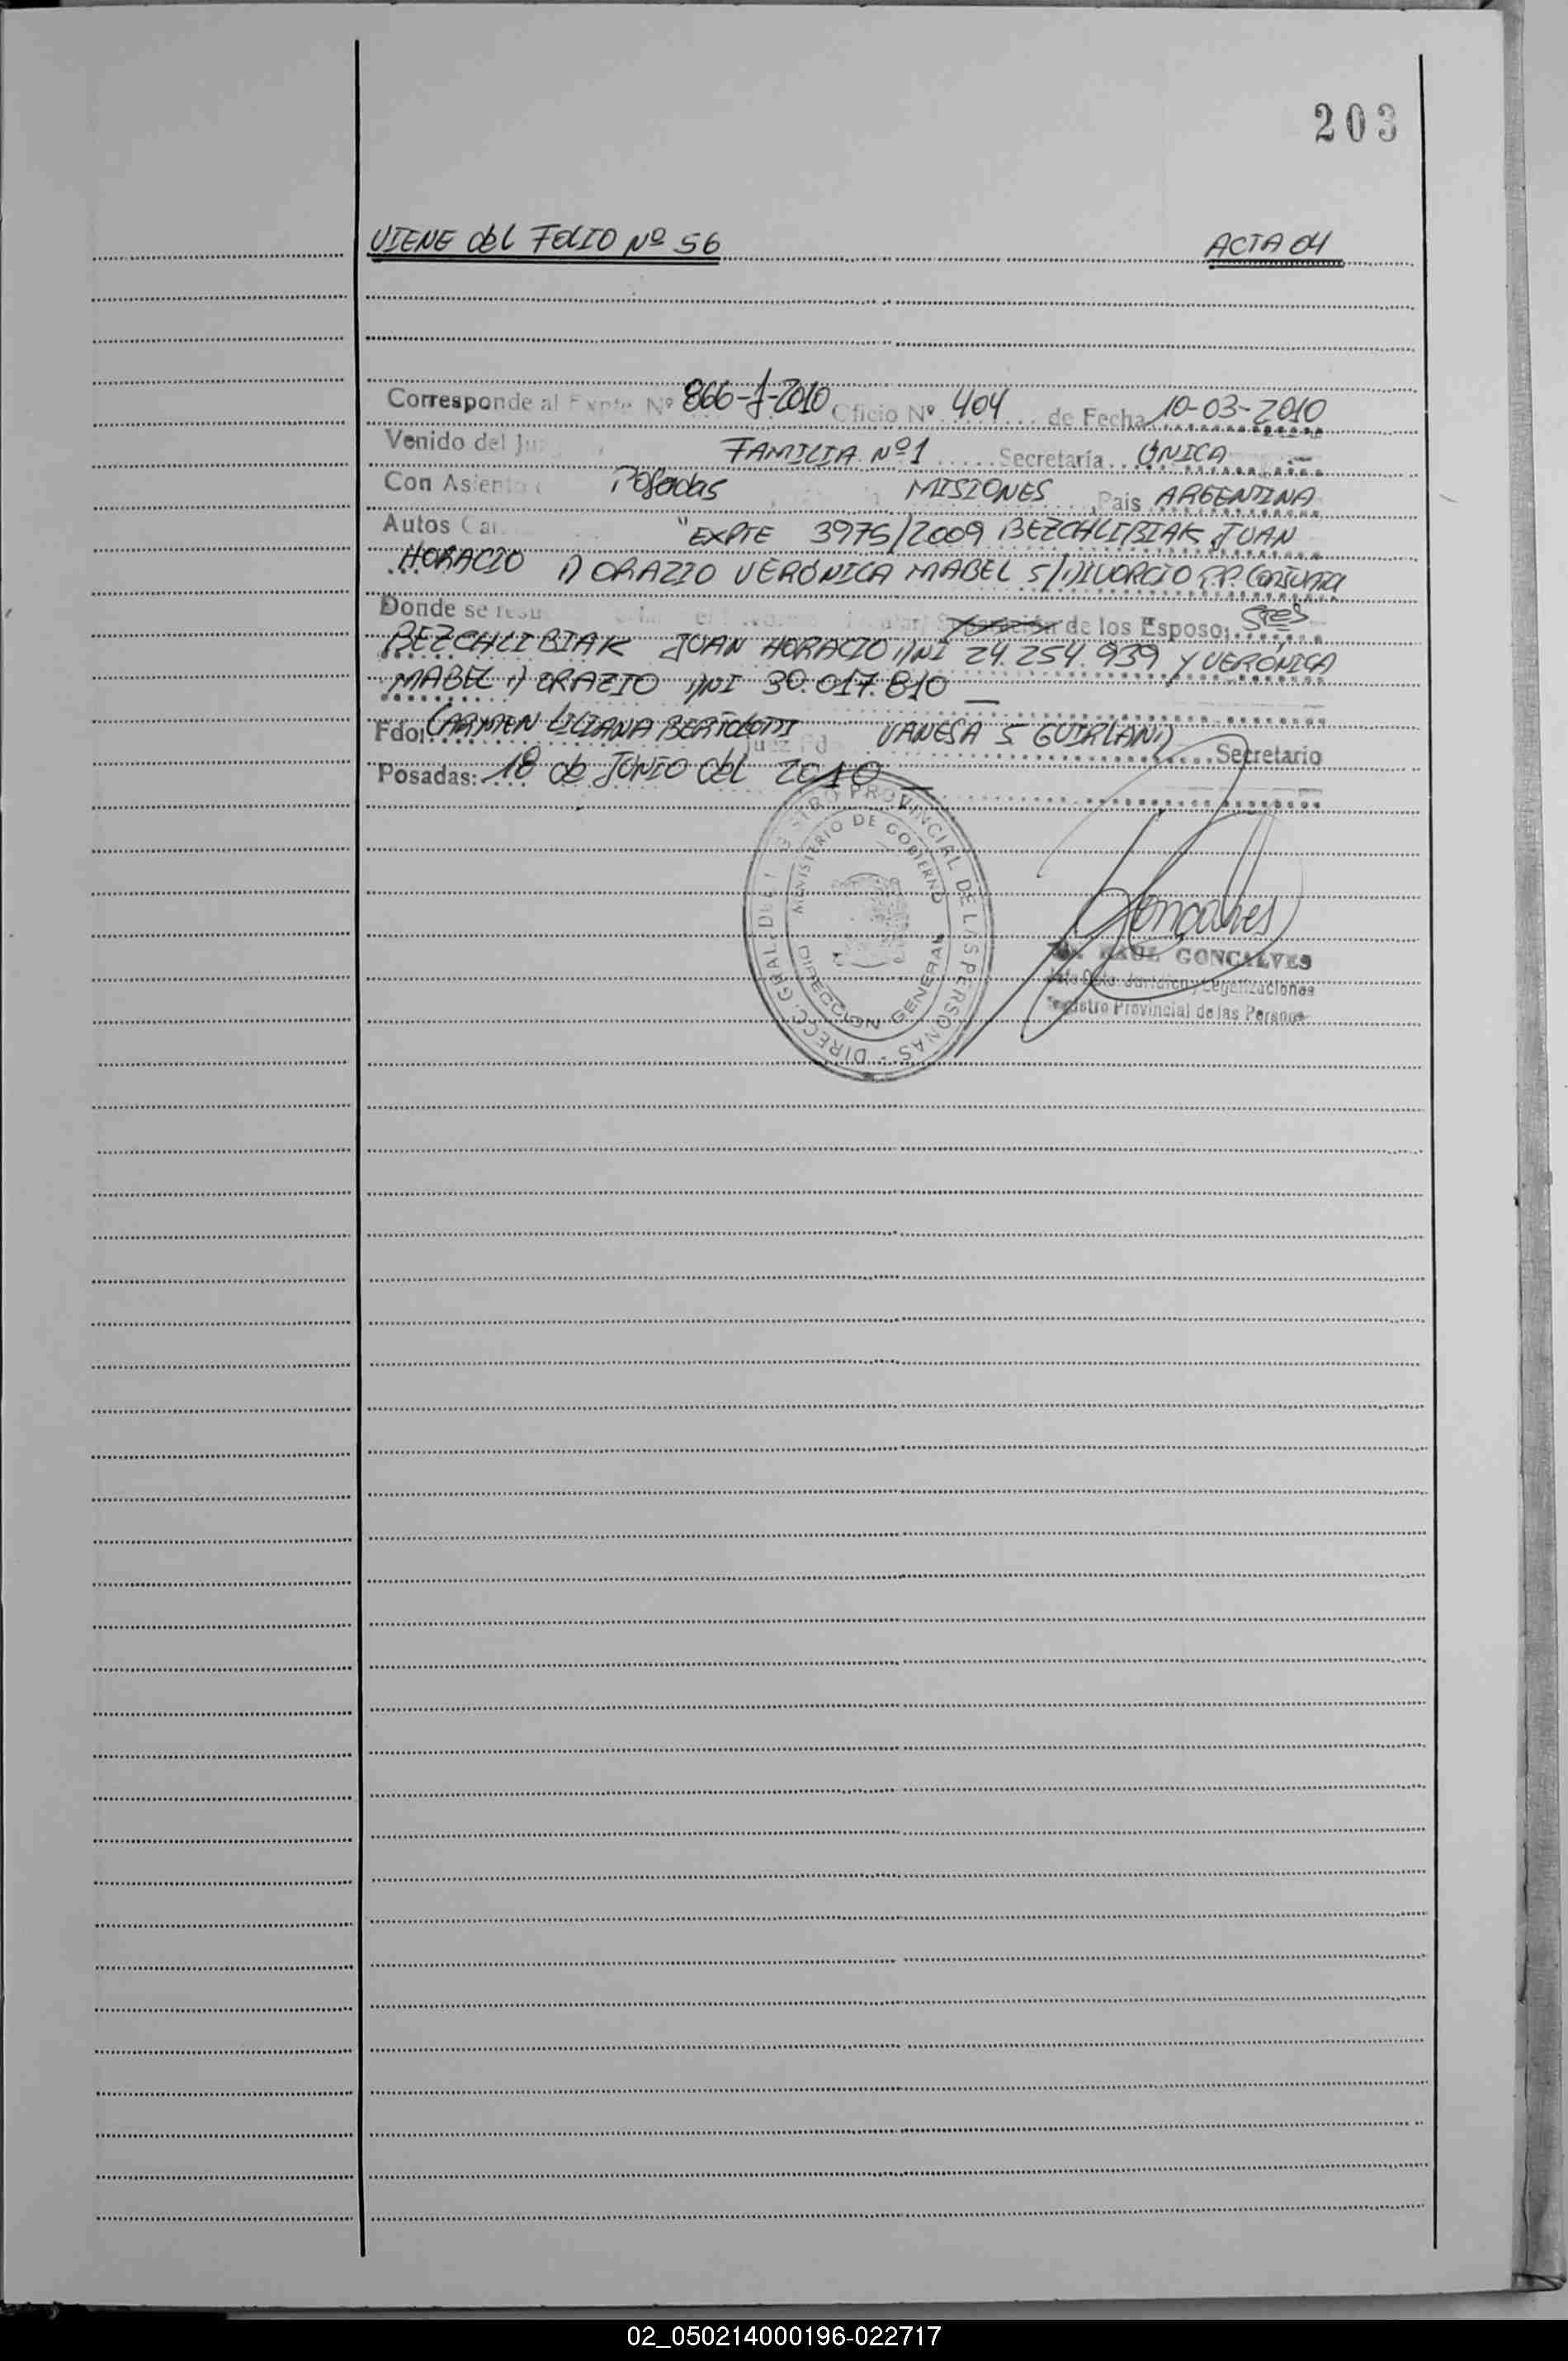 203
VIENE del FOLIO Nº 56 ACTA 04
Corresponde al Expte. Nº 866-J-2010 Oficio Nº 404 de Fecha 10-03-2010
Venido del FAMILIA Nº 1 Secretaría ÚNICA
Con Asiento Posadas MISIONES, País ARGENTINA
Autos "EXPTE 3975/2009 BEZCHLIBIAK JUAN
HORACIO D ORAZIO VERÓNICA MABEL S/DIVORCIO P.P. Conjunta
Donde se de los Esposo: Sres
BEZCHLIBIAK JUAN HORACIO DNI 24.254.939 Y VERÓNICA
MABEL D ORAZIO DNI 30.017.810
Fdo: CARMEN LILIANA BERTOLOTTI Juez Fdo VANESA S GUIRLAND Secretario
Posadas: 18 de JUNIO del 2010
DIRECC. GRAL. DEL REGISTRO PROVINCIAL DE LAS PERSONAS
MINISTERIO DE GOBIERNO
DIRECCION GENERAL
Goncalves
RAUL GONCALVES
Jefe Dpto. Jurídico y Legalizaciones
Registro Provincial de las Personas
02_050214000196-022717